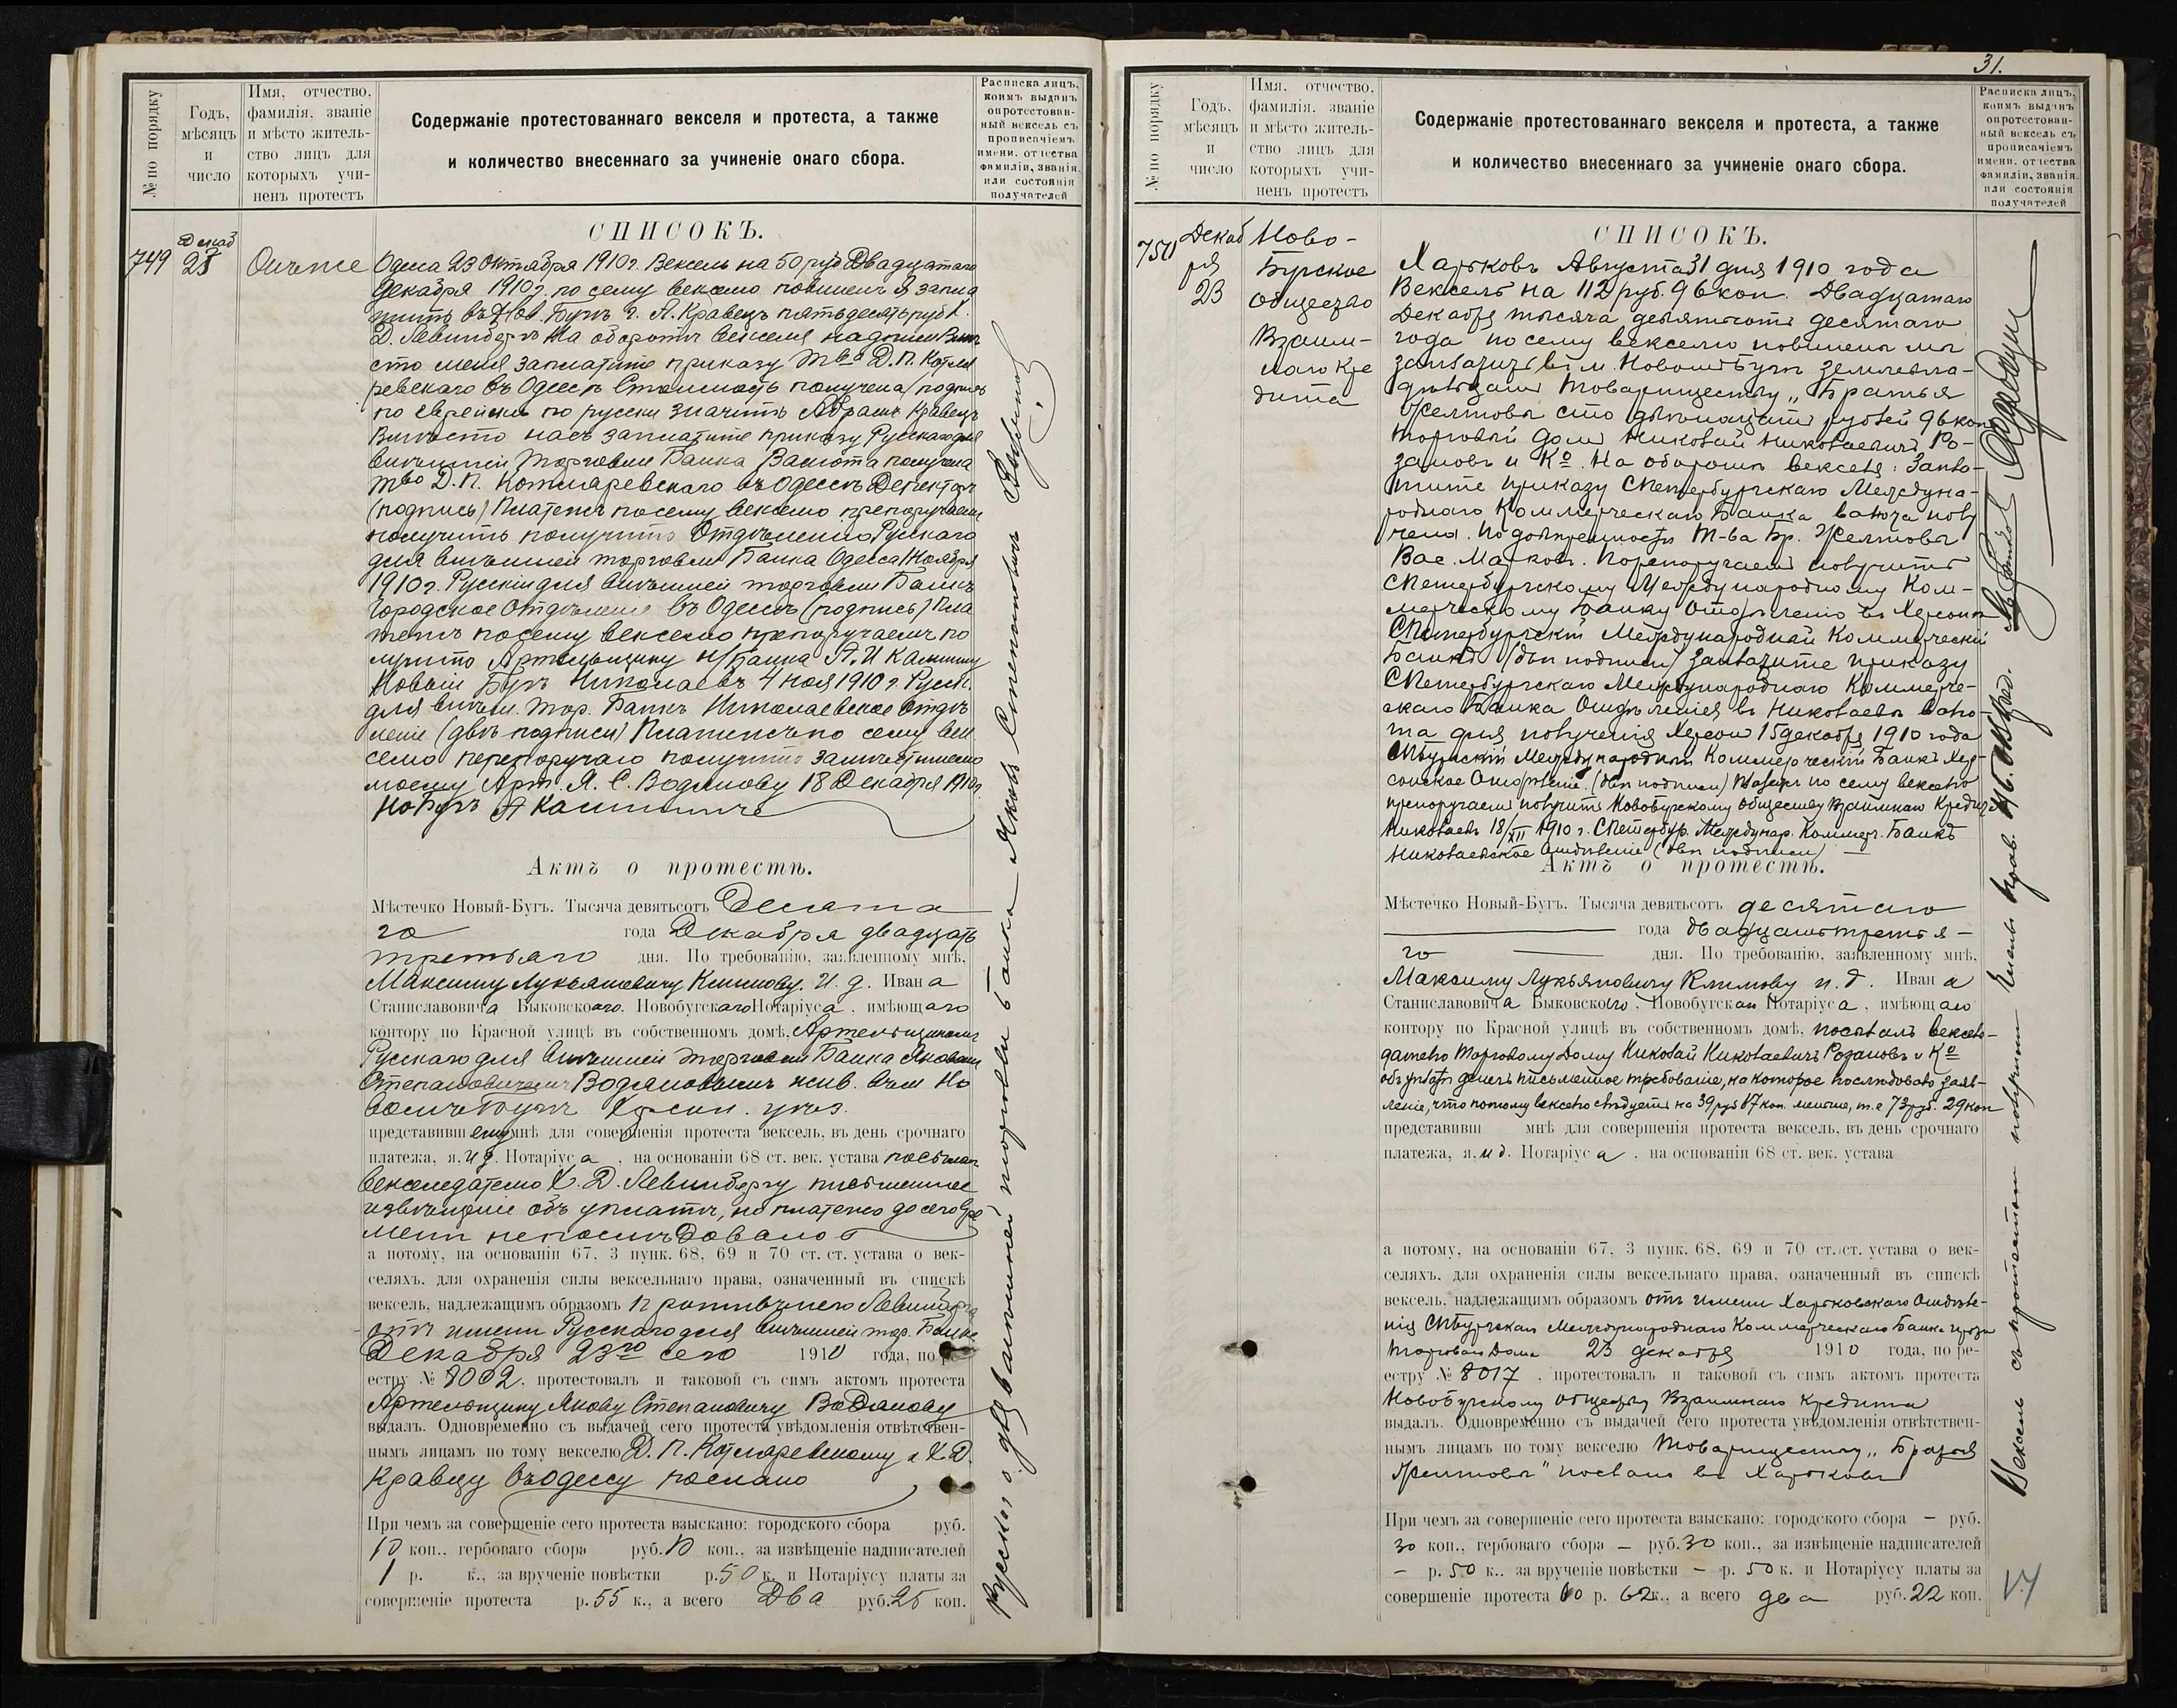 № по порядку
Годъ,
мѣсяцъ
и
число
Имя, отчество,
фамилія, званіе
и мѣсто житель-
ство лицъ для
которыхъ учи-
ненъ протестъ
Содержаніе протестованнаго векселя и протеста, а также
и количество внесеннаго за учиненіе онаго сбора.
Расписка лицъ,
коимъ выданъ
опротестован-
ный вексель съ
прописаніемъ
имени, отчества
фамиліи, званія,
или состоянія
получателей
СПИСОКЪ.
749
Декаб
23
Одесса 23 октября 1910 г. Вексель на 50 руб Двадцатаго
Декабря 1910 г. по сему векселю повиненъ я запла
тить въ Нов. Бугѣ г. А. Кравецъ пятьдесять руб Х.
Д. Левинбергъ На оборотѣ векселя надписи Вмѣ
сто меня заплатите приказу Тва Д. П. Котля
ревскаго въ Одессѣ Стоимость получена (подпись
по еврейски по русски значитъ Абрамъ Кравецъ
Вмѣсто насъ заплатите приказу Русскаго для
внѣшней торговли Банка Валюта получена
Тво Д. П. Котляревскаго въ Одессѣ Деректоръ
(подпись) Платежъ по сему векселю препоручаемъ
получить получить Отдѣленію Русскаго
для внѣшней торговли Банка Одесса Ноября
1910 г. Русскій для внѣшней торговли Банкъ
Городское Отдѣленіе въ Одессѣ (подпись) Пла
тежъ по сему векселю препоручаемъ по
лучить Артельщику н/Банка А. И Калинину
Новый Бугъ Николаевъ 4 ноя 1910 г. Русск.
для внѣшн. тор. Банкъ Николаевское Отдѣ
леніе (двѣ подписи) Платежъ по сему век
селю перепоручаю получить замѣстителю
моему Арт. Я. С. Водянову 18 Декабря 1910 г.
Актъ о протестѣ.
Мѣстечко Новый-Бугъ. Тысяча девятьсотъ Десята
го года Декабря двадцать
третьяго дня. По требованію, заявленному мнѣ,
Максиму Лукьяновичу Климову. И. д. Ивана
Станиславовича Быковскаго, Новобугскаго Нотаріуса, имѣющаго
контору по Красной улицѣ въ собственномъ домѣ, Артельщикомъ
Русскаго для внѣшней торговли Банка Яковомъ
Степановичемъ Водяновымъ жив. въ м Но
вомъ Бугѣ Херсон. уѣз.
представившему мнѣ для совершенія протеста вексель, въ день срочнаго
платежа, я, И д. Нотаріуса, на основаніи 68 ст. век. устава послалъ
векселедателю Х. Д. Левинбергу письменное
извѣщеніе объ уплатѣ, но платежа до сего вре
мени непослѣдовало
а потому, на основаніи 67, 3 пунк. 68, 69 и 70 ст. ст. устава о век-
селяхъ, для охраненія силы вексельнаго права, означенный въ спискѣ
вексель, надлежащимъ образомъ противъ него Левинберга
отъ имени Русскаго для внѣшней тор. Банка
Декабря 23го сего 1910 года, по ре-
естру № 8002, протестовалъ и таковой съ симъ актомъ протеста
Артельщику Якову Степановичу Водянову
выдалъ. Одновременно съ выдачей сего протеста увѣдомленія отвѣтствен-
нымъ лицамъ по тому векселю Д. П. Котляревскому и Х. Д.
Кравцу въ Одессу послано
При чемъ за совершеніе сего протеста взыскано: городского сбора руб.
10 коп., гербоваго сбора руб. 10 коп., за извѣщеніе надписателей
1 р. к., за врученіе повѣстки р. 50 к. и Нотаріусу платы за
совершеніе протеста р. 55 к., а всего Два руб. 25 коп.
31.
№ по порядку
Годъ,
мѣсяцъ
и
число
Имя, отчество,
фамилія, званіе
и мѣсто житель-
ство лицъ для
которыхъ учи-
ненъ протестъ
Содержаніе протестованнаго векселя и протеста, а также
и количество внесеннаго за учиненіе онаго сбора.
Расписка лицъ,
коимъ выданъ
опротестован-
ный вексель съ
прописаніемъ
имени, отчества
фамиліи, званія,
или состоянія
получателей
СПИСОКЪ.
750
Декаб
ря
23
Ново-
Бугское
Общество
Взаим-
наго Кре
дита
Харьковъ Августа 31 дня 1910 года
Вексель на 112 руб. 96 коп. Двадцатаго
Декабря тысяча девятьсотъ десятаго
года по сему векселю повинны мы
заплатить въ м. Новомъ Бугѣ землевла-
дѣльцамъ Товариществу „Братья
Желтовы сто двѣнадцать рублей 96 коп
Торговый домъ Николай Николаевичъ Ро-
зановъ и Ко. На оборотѣ векселя: Запла-
тите приказу СПетербургскаго Междуна-
роднаго Коммерческаго Банка валюта полу
чена. По довѣренности Т-ва Бр. Желтовы
Вас. Марковъ. Перепоручаемъ получить
СПетербургскому Международному Ком-
мерческому Банку Отдѣленію въ Херсонѣ
СПетербургскій Международный Коммерческій
Банкъ (двѣ подписи) заплатите приказу
СПетербургскаго Международнаго Коммерче-
скаго Банка Отдѣленія въ Николаевѣ валю-
та для полученія Херсон 15 декабря 1910 года
СПбургскій Международный Коммерческій Банкъ Хер-
сонское Отдѣленіе. (двѣ подписи) Платежъ по сему векселю
препоручаемъ получить Новобугскому Обществу Взаимнаго Кредита
Николаевъ 18/XII 1910 г. СПетербур. Междунар. Коммерч. Банкъ
Николаевское Отдѣленіе (двѣ подписи) —
Актъ о протестѣ.
Мѣстечко Новый-Бугъ. Тысяча девятьсотъ десятаго
года двадцать третья-
го дня. По требованію, заявленному мнѣ,
Максиму Лукьяновичу Климову и. д. Ивана
Станиславовича Быковскаго, Новобугскаго Нотаріуса, имѣющаго
контору по Красной улицѣ въ собственномъ домѣ, послалъ вексел-
дателю Торговому Дому Николай Николаевичъ Розановъ и Ко
объ уплатѣ денегъ письменное требованіе, на которое послѣдовало заяв-
леніе, что по тому векселю слѣдуетъ на 39 руб 67 коп. меньше, т. е 73 руб. 29 коп
представивш мнѣ для совершенія протеста вексель, въ день срочнаго
платежа, я, и д. Нотаріуса, на основаніи 68 ст. век. устава
а потому, на основаніи 67, 3 пунк. 68, 69 и 70 ст. ст. устава о век-
селяхъ, для охраненія силы вексельнаго права, означенный въ спискѣ
вексель, надлежащимъ образомъ отъ имени Харьковскаго Отдѣле-
нія СПбургскаго Международнаго Коммерческаго Банка
Торговаго Дома 23 декабря 1910 года, по ре-
естру № 8017, протестовалъ и таковой съ симъ актомъ протеста
Новобугскому обществу Взаимнаго Кредита
выдалъ. Одновременно съ выдачей сего протеста увѣдомленія отвѣтствен-
нымъ лицамъ по тому векселю Товариществу „Братья
Желтовы" послано въ Харьковъ
При чемъ за совершеніе сего протеста взыскано: городского сбора — руб.
30 коп., гербоваго сбора — руб. 30 коп., за извѣщеніе надписателей
— р. 50 к., за врученіе повѣстки — р. 50 к. и Нотаріусу платы за
совершеніе протеста р. 62 к., а всего два руб. 22 коп.
Вексель съ протестомъ получилъ Членъ Прав.